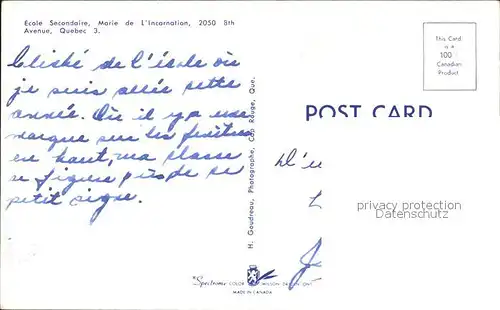 École Secondaire, Marie de L'Incarnation, 2050 8th
Avenue, Quebec 3.
Cliché de l'école où
je suis allée cette
année. Où il y a une
marque sur les fenêtres
en haut, ma classe
se figure près de ce
petit signe.
H. Goudreau, Photographe, Cap Rouge, Que.
This Card
is a
100
Canadian
Product
POST CARD
D'u
privacy protection
Datenschutz
Spectrome COLOR
WILSON DRYDEN ONT
MADE IN CANADA